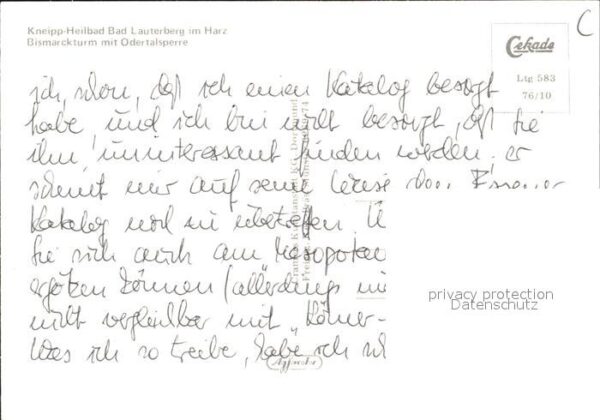 Kneipp-Heilbad Bad Lauterberg im Harz
Bismarckturm mit Odertalsperre
C
Cekade
Ltg 583
76/10
ich schon, daß ich einen Katalog besorgt
habe, und ich bin nicht besorgt, daß Sie
ihn uninteressant finden werden, er
scheint mir auf seine Weise den
Katalog noch zu übertreffen.
Sie sich auch am
ergötzen können (allerdings
nicht vergleichbar mit „Römer-
Was ich so treibe, habe ich
privacy protection
Datenschutz